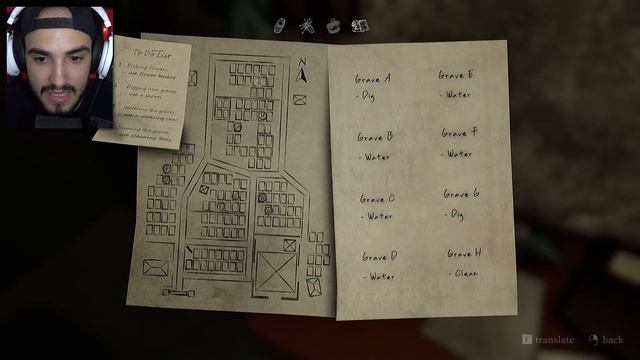 To Do List
Picking flowers
- use flower basket
Digging new graves
- use a shovel
Watering the graves
- use a watering can
Cleaning the graves
- use cleaning tools
N
Grave A
- Dig
Grave B
- Water
Grave C
- Water
Grave D
- Water
Grave E
- Water
Grave F
- Water
Grave G
- Dig
Grave H
- Clean
F translate
back